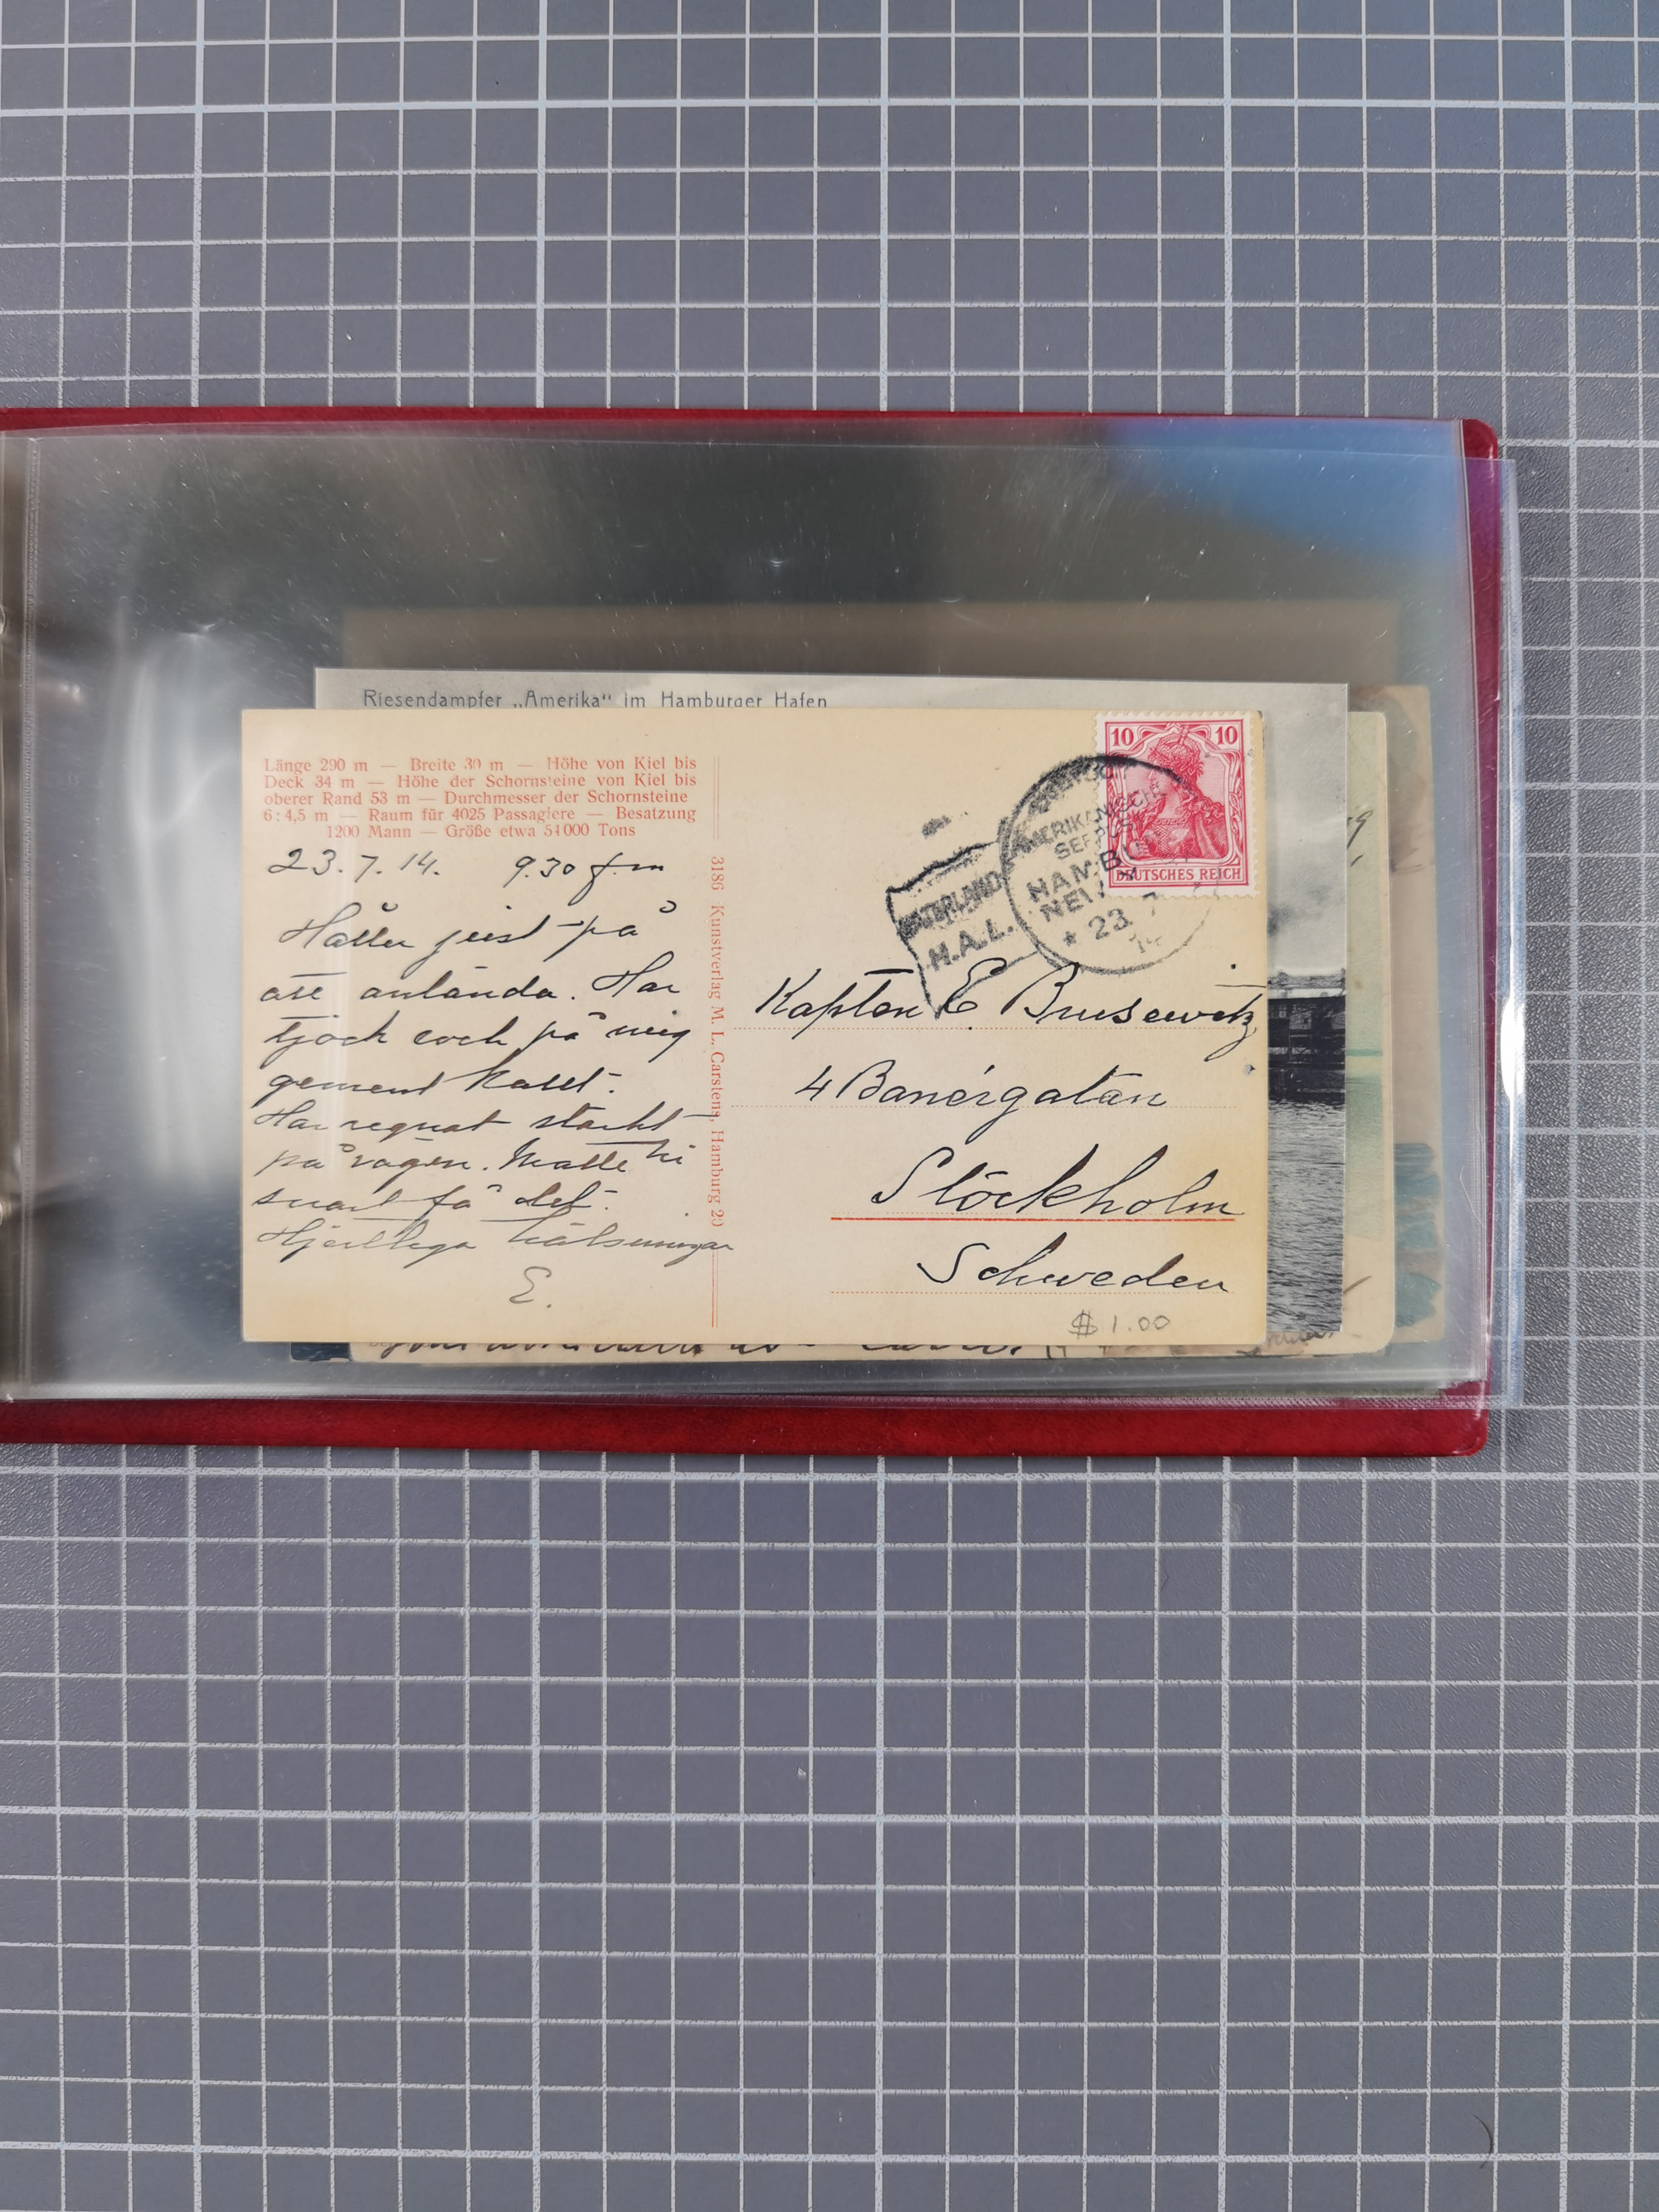 Riesendampfer „Amerika“ im Hamburger Hafen
Länge 290 m — Breite 30 m — Höhe von Kiel bis
Deck 34 m — Höhe der Schornsteine von Kiel bis
oberer Rand 53 m — Durchmesser der Schornsteine
6:4,5 m — Raum für 4025 Passagiere — Besatzung
1200 Mann — Größe etwa 54000 Tons
23.7.14. 9.30 fm
Håller just på
att anlända. Har
tjock rock på mig
gement kallt.
Har regnat starkt
på vägen. Måtte ni
snart få det.
Hjertliga hälsningar
E.
3186 Kunstverlag M. L. Carstens, Hamburg 20
10 10
DEUTSCHES REICH
VATERLAND
H.A.L.
AMERIKANISCHE
SEEPOST
HAMB
NEW
* 23 7
14
Kapten E. Brusewitz
4 Banérgatan
Stockholm
Schweden
$ 1.00